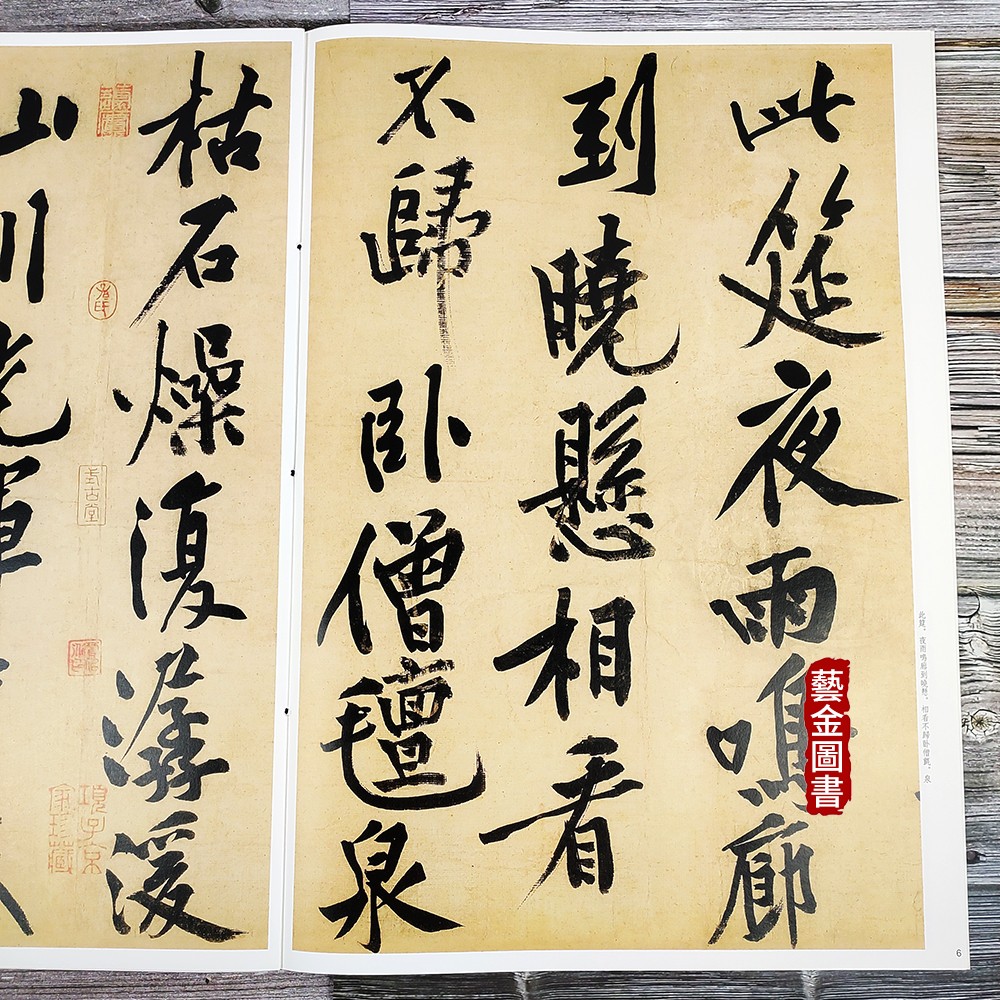 此筵夜雨鳴廊
到曉懸相看
不歸卧僧氈泉
枯石燥復潺湲
山川光
此筵。夜雨鳴廊到曉懸。相看不歸卧僧氈。泉
6
藝金圖書
式古堂
項子京
家珍藏